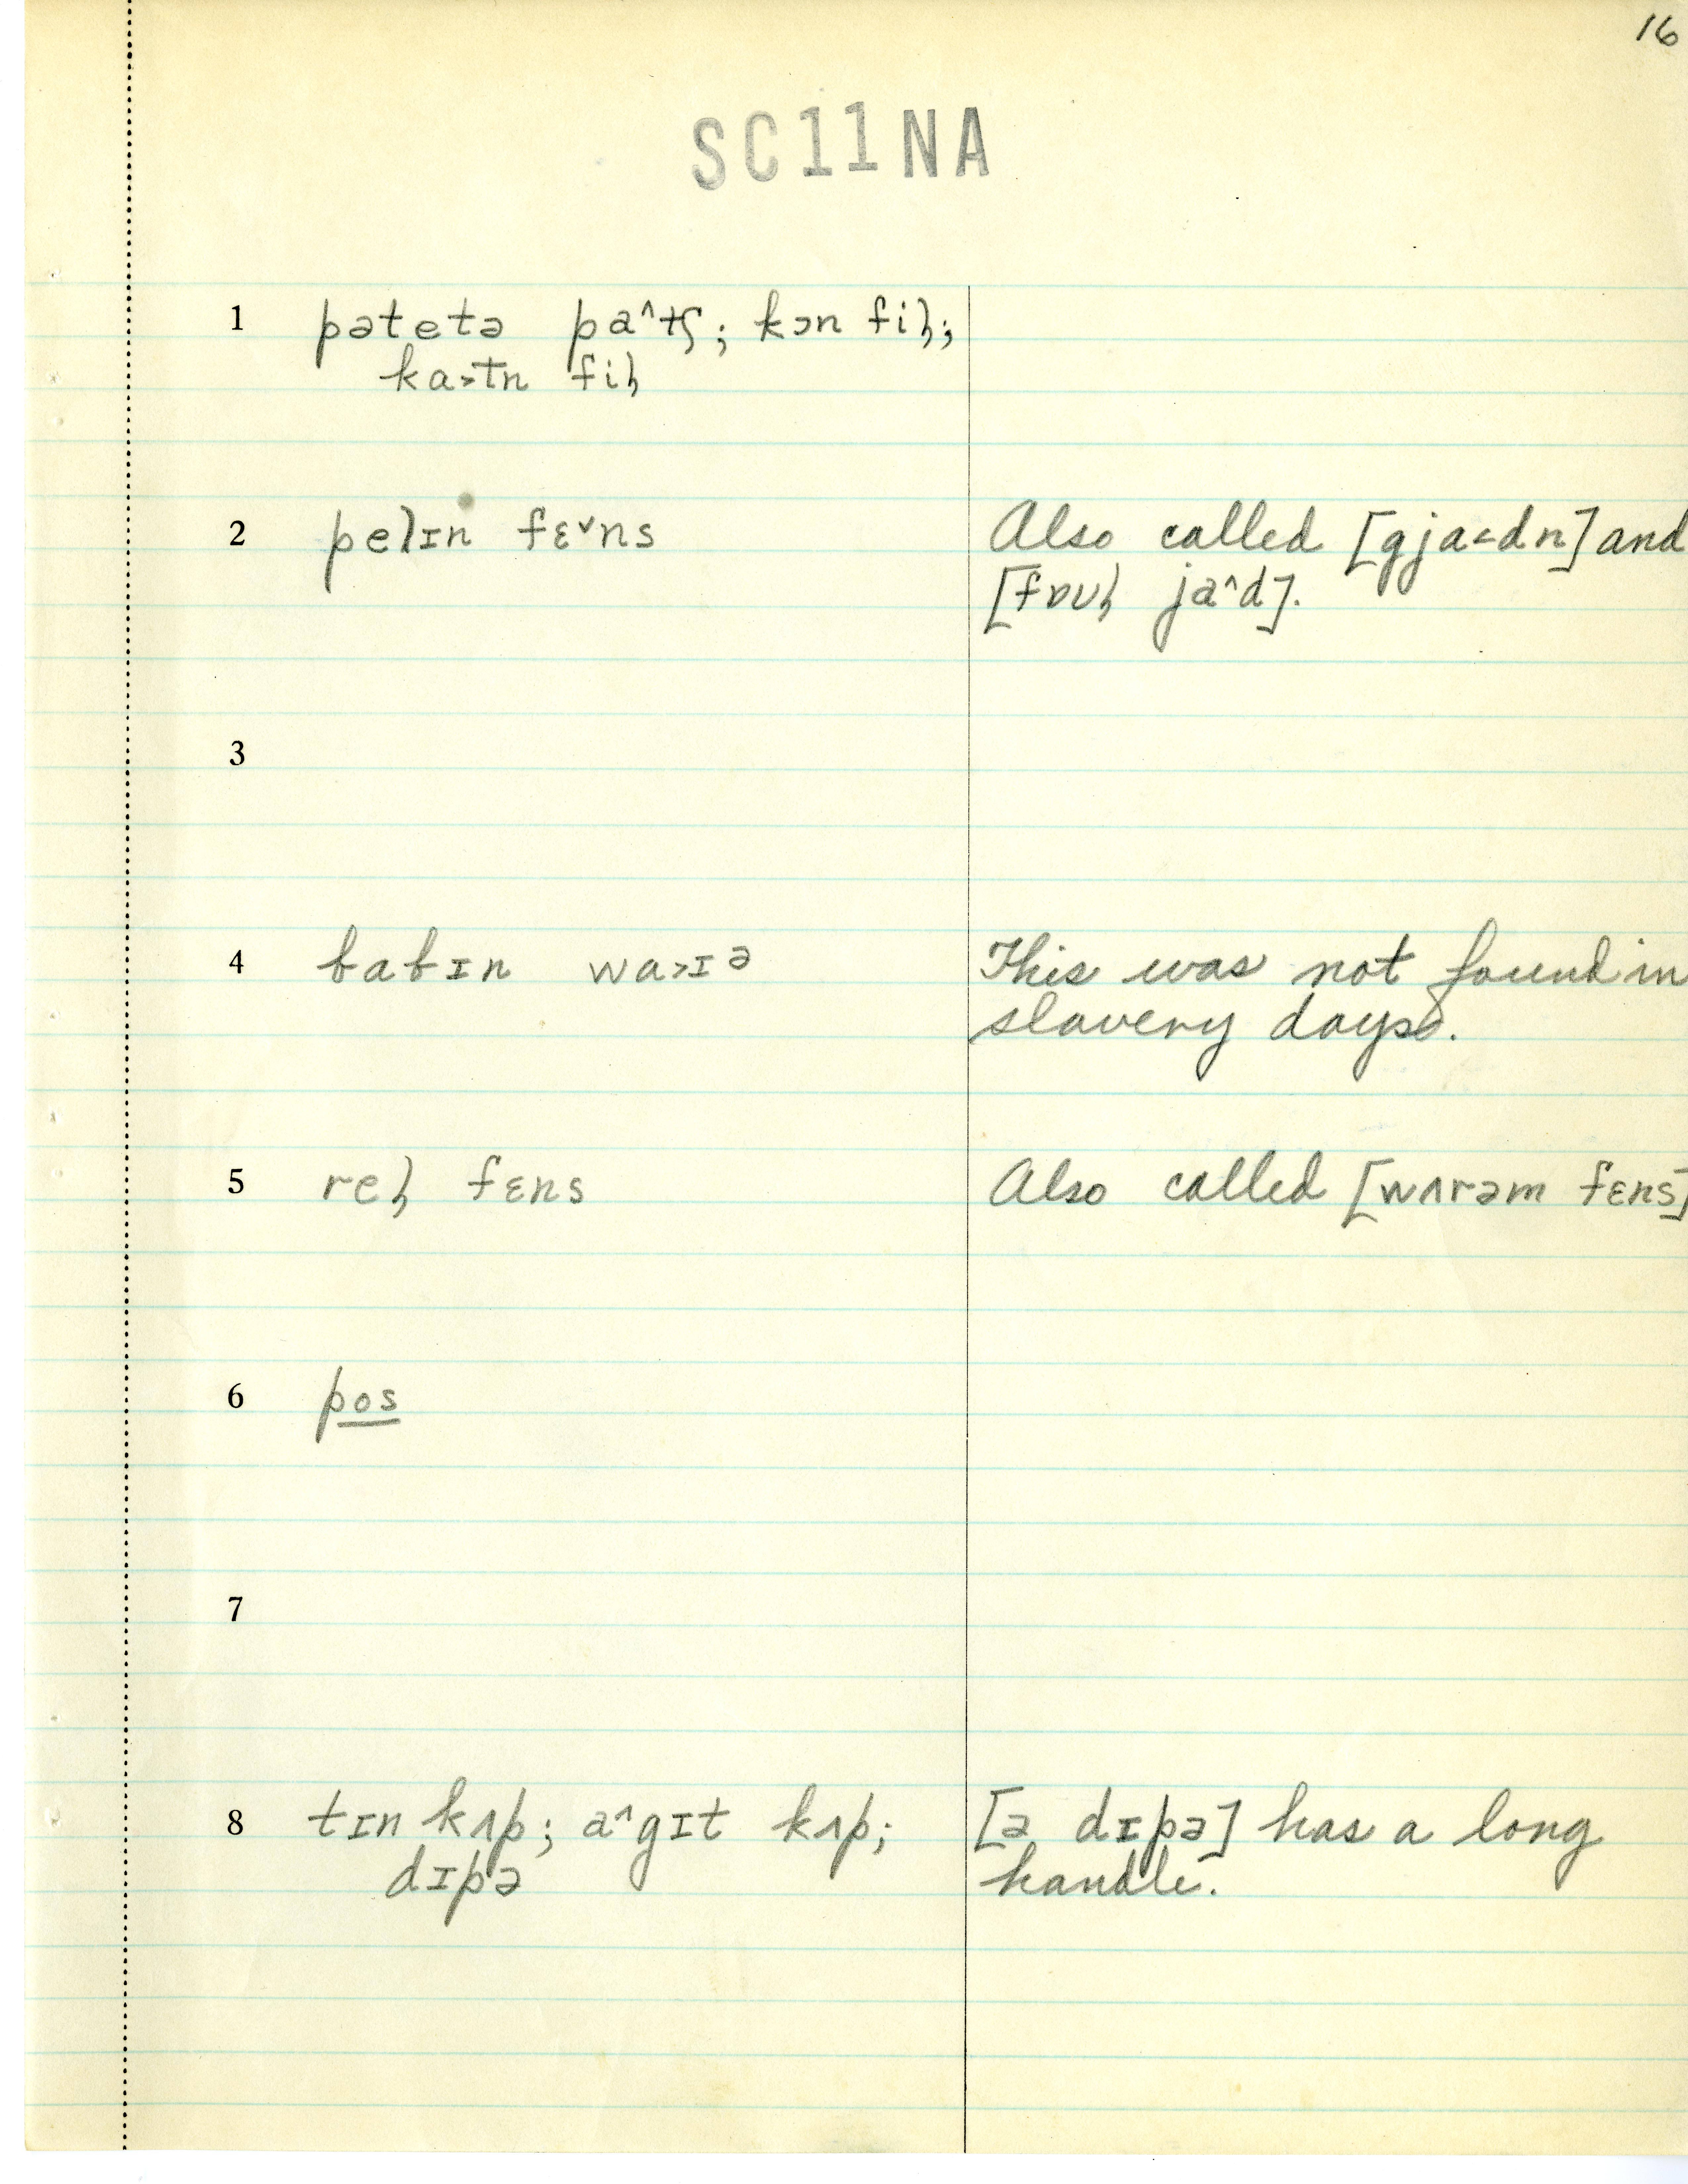 16
SC11NA
1 pətetə pa^tʃ; kɔn fiɫ;
ka>tn fiɫ
2 pelɪn fɛ˅ns
Also called [gja<dn] and
[fɒʊɫ ja^d].
3
4 babɪn wa>ɪə
This was not found in
slavery days.
5 reɫ fɛns
Also called [wʌrəm fɛns]
6 pos
7
8 tɪn kʌp; a^gɪt kʌp;
dɪpə
[ə dɪpə] has a long
handle.